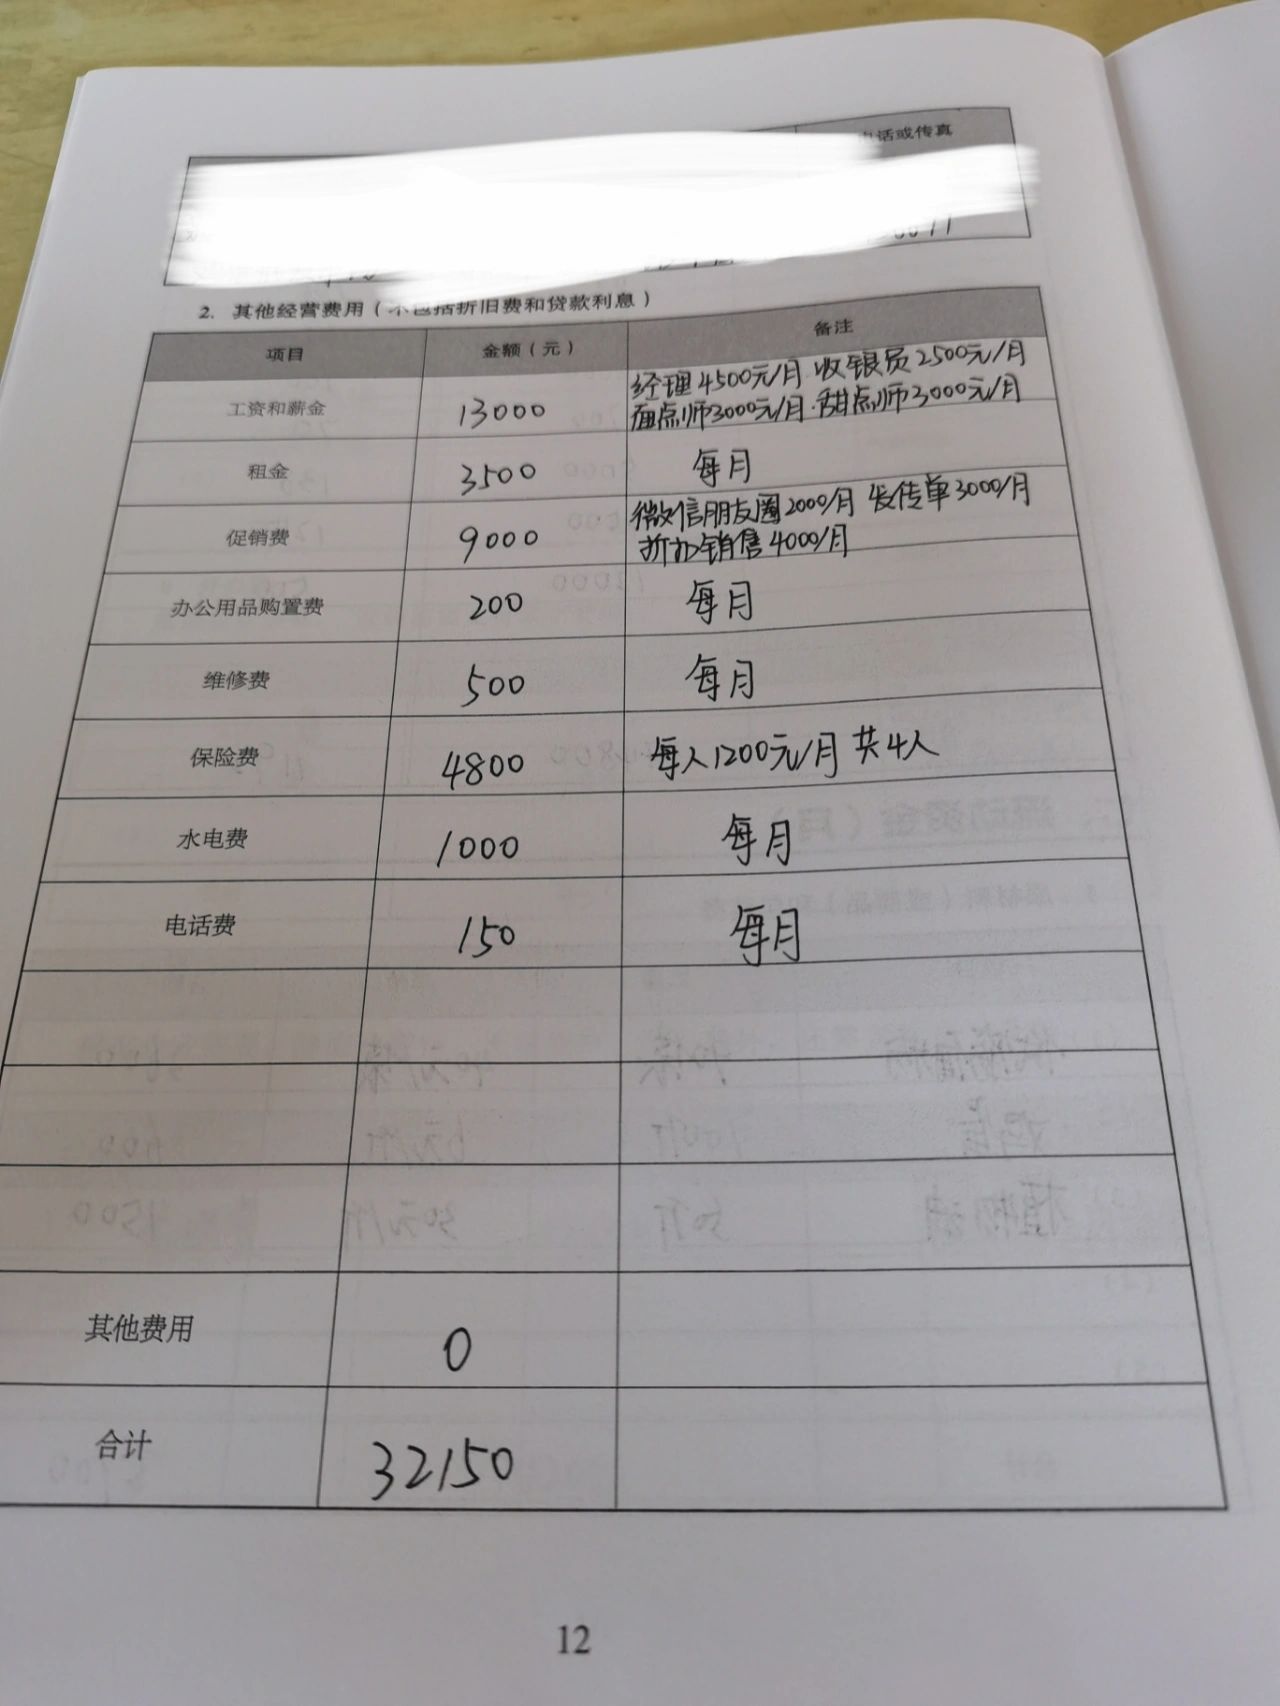 话或传真
2. 其他经营费用（不包括折旧费和贷款利息）
项目 金额（元） 备注
工资和薪金 13000 经理4500元/月 收银员2500元/月
面点师3000元/月·甜点师3000元/月
租金 3500 每月
促销费 9000 微信朋友圈2000/月 发传单3000/月
折扣销售4000/月
办公用品购置费 200 每月
维修费 500 每月
保险费 4800 每人1200元/月 共4人
水电费 1000 每月
电话费 150 每月
其他费用 0
合计 32150
12